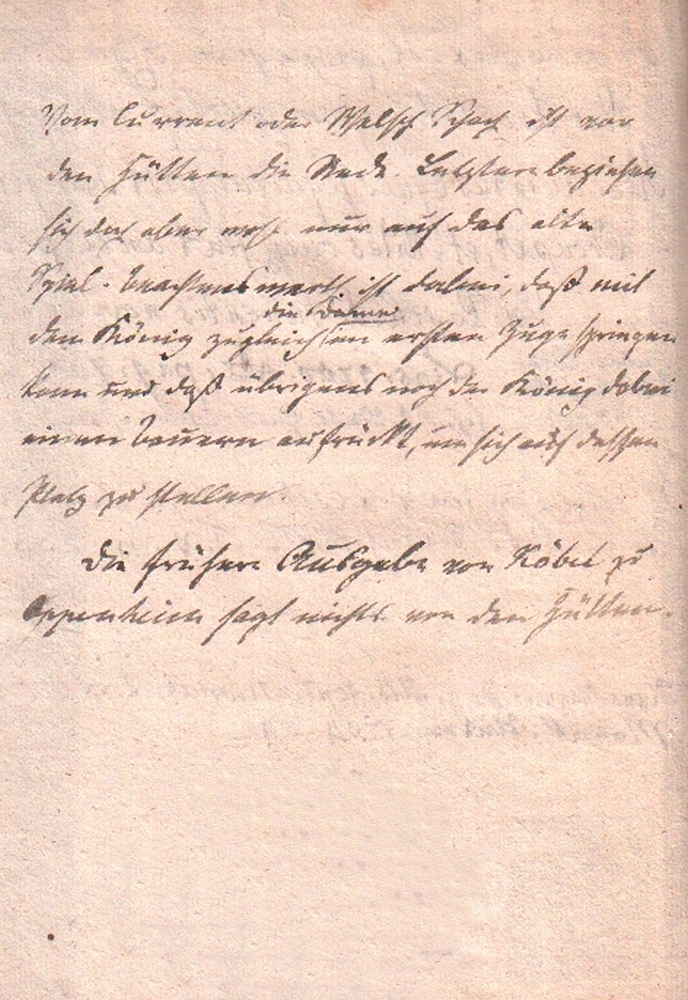 Vom Current oder Welsch Schach ist vor
den Hütten die Rede. Letztere beziehen
sich doch aber wohl nur auf das alte
Spiel. Beachtenswerth ist dabei, daß mit
die Dame
dem König zugleich im ersten Zuge springen
kann und daß übrigens noch der König dabei
einen Bauern aufrückt, um sich auf dessen
Platz zu stellen.
Die frühere Ausgabe von Köbel zu
Oppenheim sagt nichts von den Hütten.